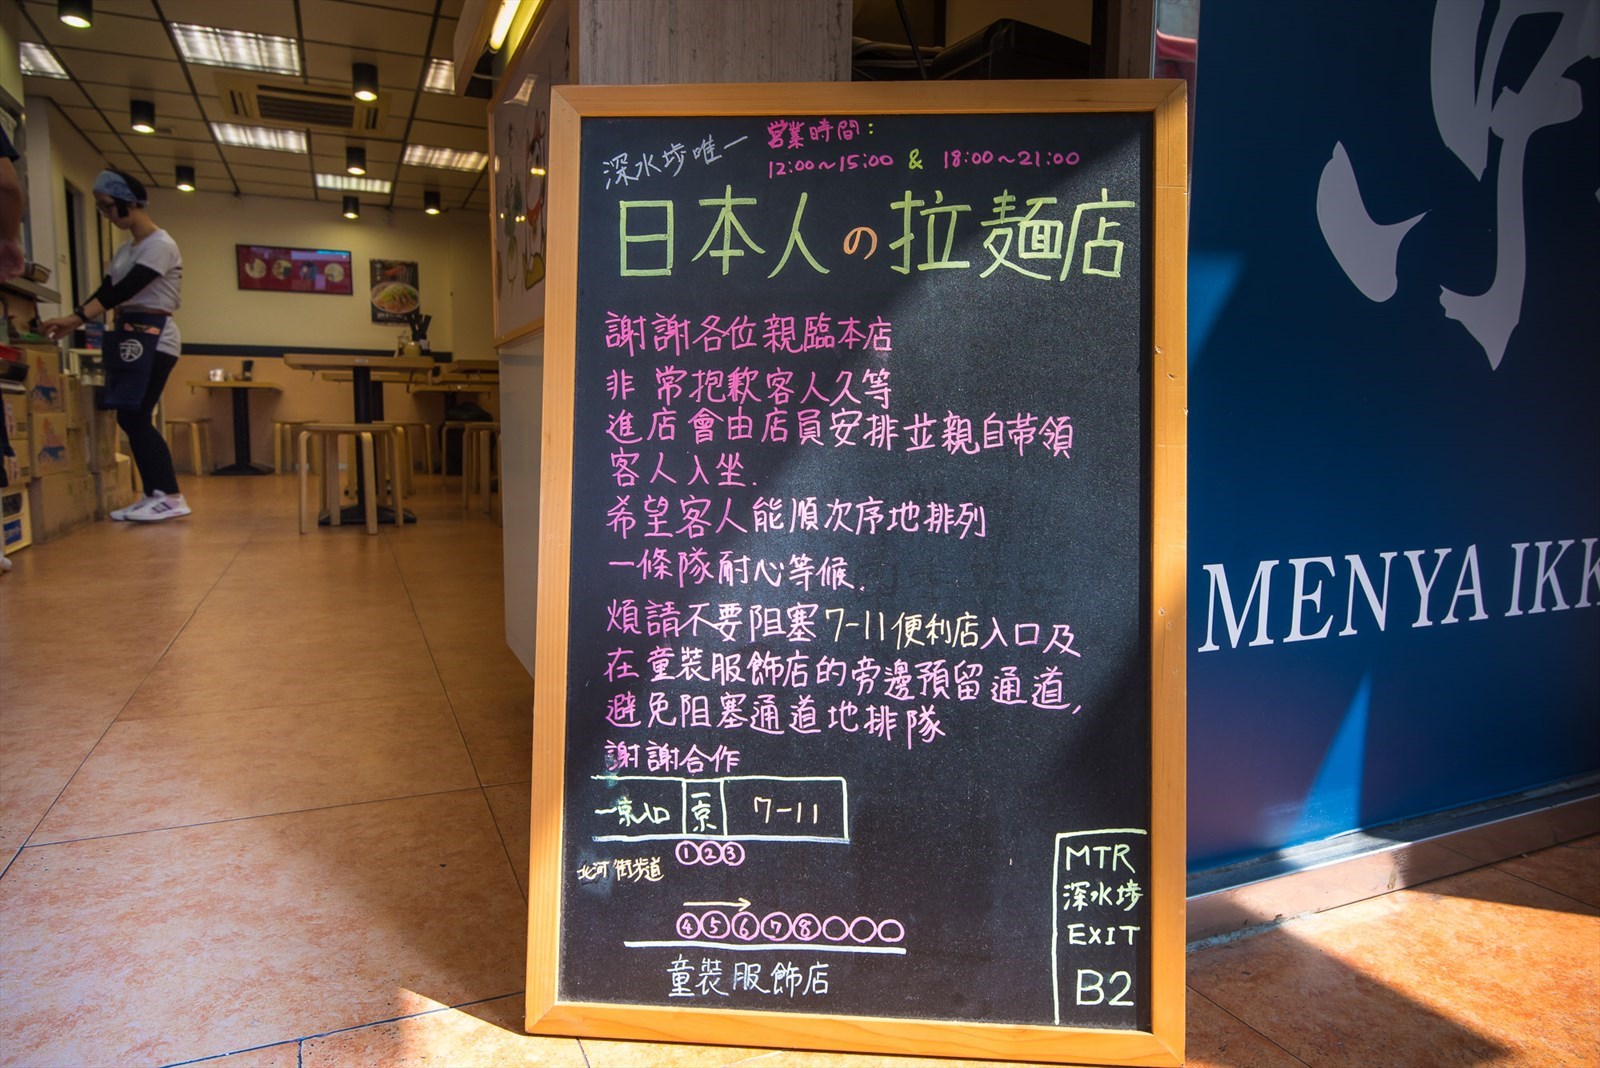 深水埗唯一
営業時間:
12:00~15:00 & 18:00~21:00
日本人の拉麺店
謝謝各位親臨本店
非常抱歉客人久等
進店會由店員安排並親自带領
客人入坐.
希望客人能順次序地排列
一條隊耐心等候.
煩請不要阻塞7-11便利店入口及
在童裝服飾店的旁邊預留通道,
避免阻塞通道地排隊
謝謝合作
一京入口 一京 7-11
①②③
北河街步道
④⑤⑥⑦⑧
童裝服飾店
MTR
深水埗
EXIT
B2
MENYA IKK